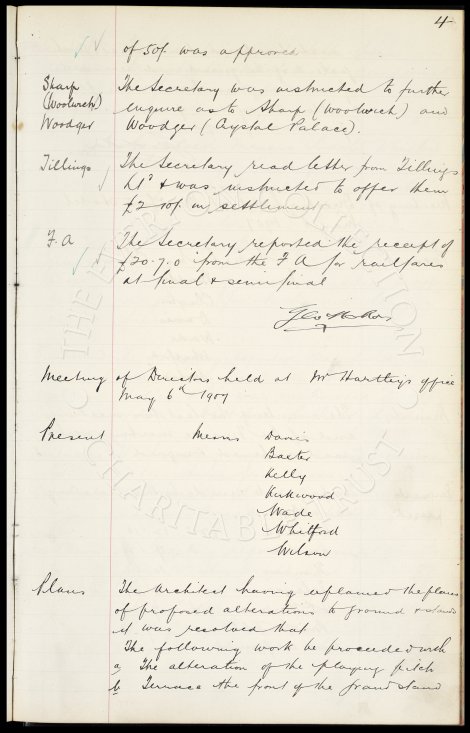 4
of 50/- was approved
Sharp The Secretary was instructed to further
(Woolwich) enquire as to Sharp (Woolwich) and
Woodger Woodger (Crystal Palace).
Tillings The Secretary read letter from Tillings
Ld & was instructed to offer them
£2-10/- in settlement
F.A The Secretary reported the receipt of
£20-7-0 from the F A for railfares
at final & semi final
Meeting of Directors held at Mr Hartley's office
May 6th 1907
Present Messrs Davies
Baxter
Kelly
Kirkwood
Wade
Whitford
Wilson
Plans The Architect having explained the plans
of proposed alterations to ground & stands
it was resolved that
The following work be proceeded with
a, The alteration of the playing pitch
b, Terrace the front of the Grand Stand
THE EVERTON COLLECTION
CHARITABLE TRUST